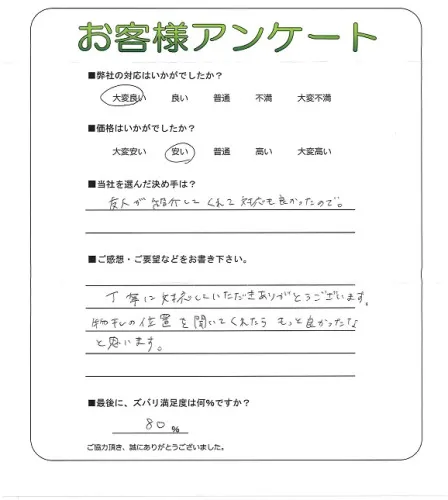 お客様アンケート
■弊社の対応はいかがでしたか？
大変良い 良い 普通 不満 大変不満
■価格はいかがでしたか？
大変安い 安い 普通 高い 大変高い
■当社を選んだ決め手は？
友人が紹介してくれて対応も良かったので。
■ご感想・ご要望などをお書き下さい。
丁寧に対応していただきありがとうございます。
の位置を聞いてくれたらもっと良かったな
と思います。
■最後に、ズバリ満足度は何%ですか？
80 %
ご協力頂き、誠にありがとうございました。